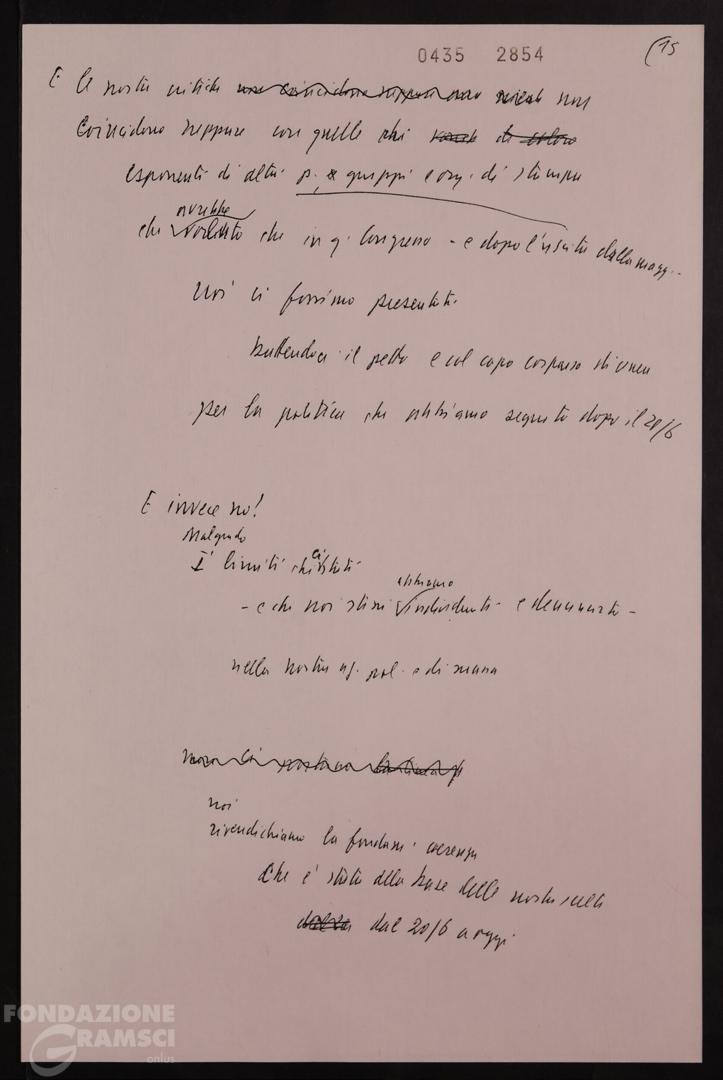 0435 2854
(15
E le nostre critiche non coincidono neppure non
coincidono neppure con quelle di
esponenti di altri p. e gruppi e org. di stampa
avrebbe
che voluto che in q. Congresso - e dopo l'uscita dalla magg..
noi ci fossimo presentati
battendoci il petto e col capo cosparso di cenere
per la politica che abbiamo seguito dopo il 20/6
E invece no!
Malgrado
I limiti che ci stati
abbiamo
- e che noi stessi individuati e denunciato -
nella nostra az. pol. e di massa
noi
rivendichiamo la fondam. coerenza
che è stata alla base delle nostre scelte
dal 20/6 a oggi
FONDAZIONE
GRAMSCI
onlus